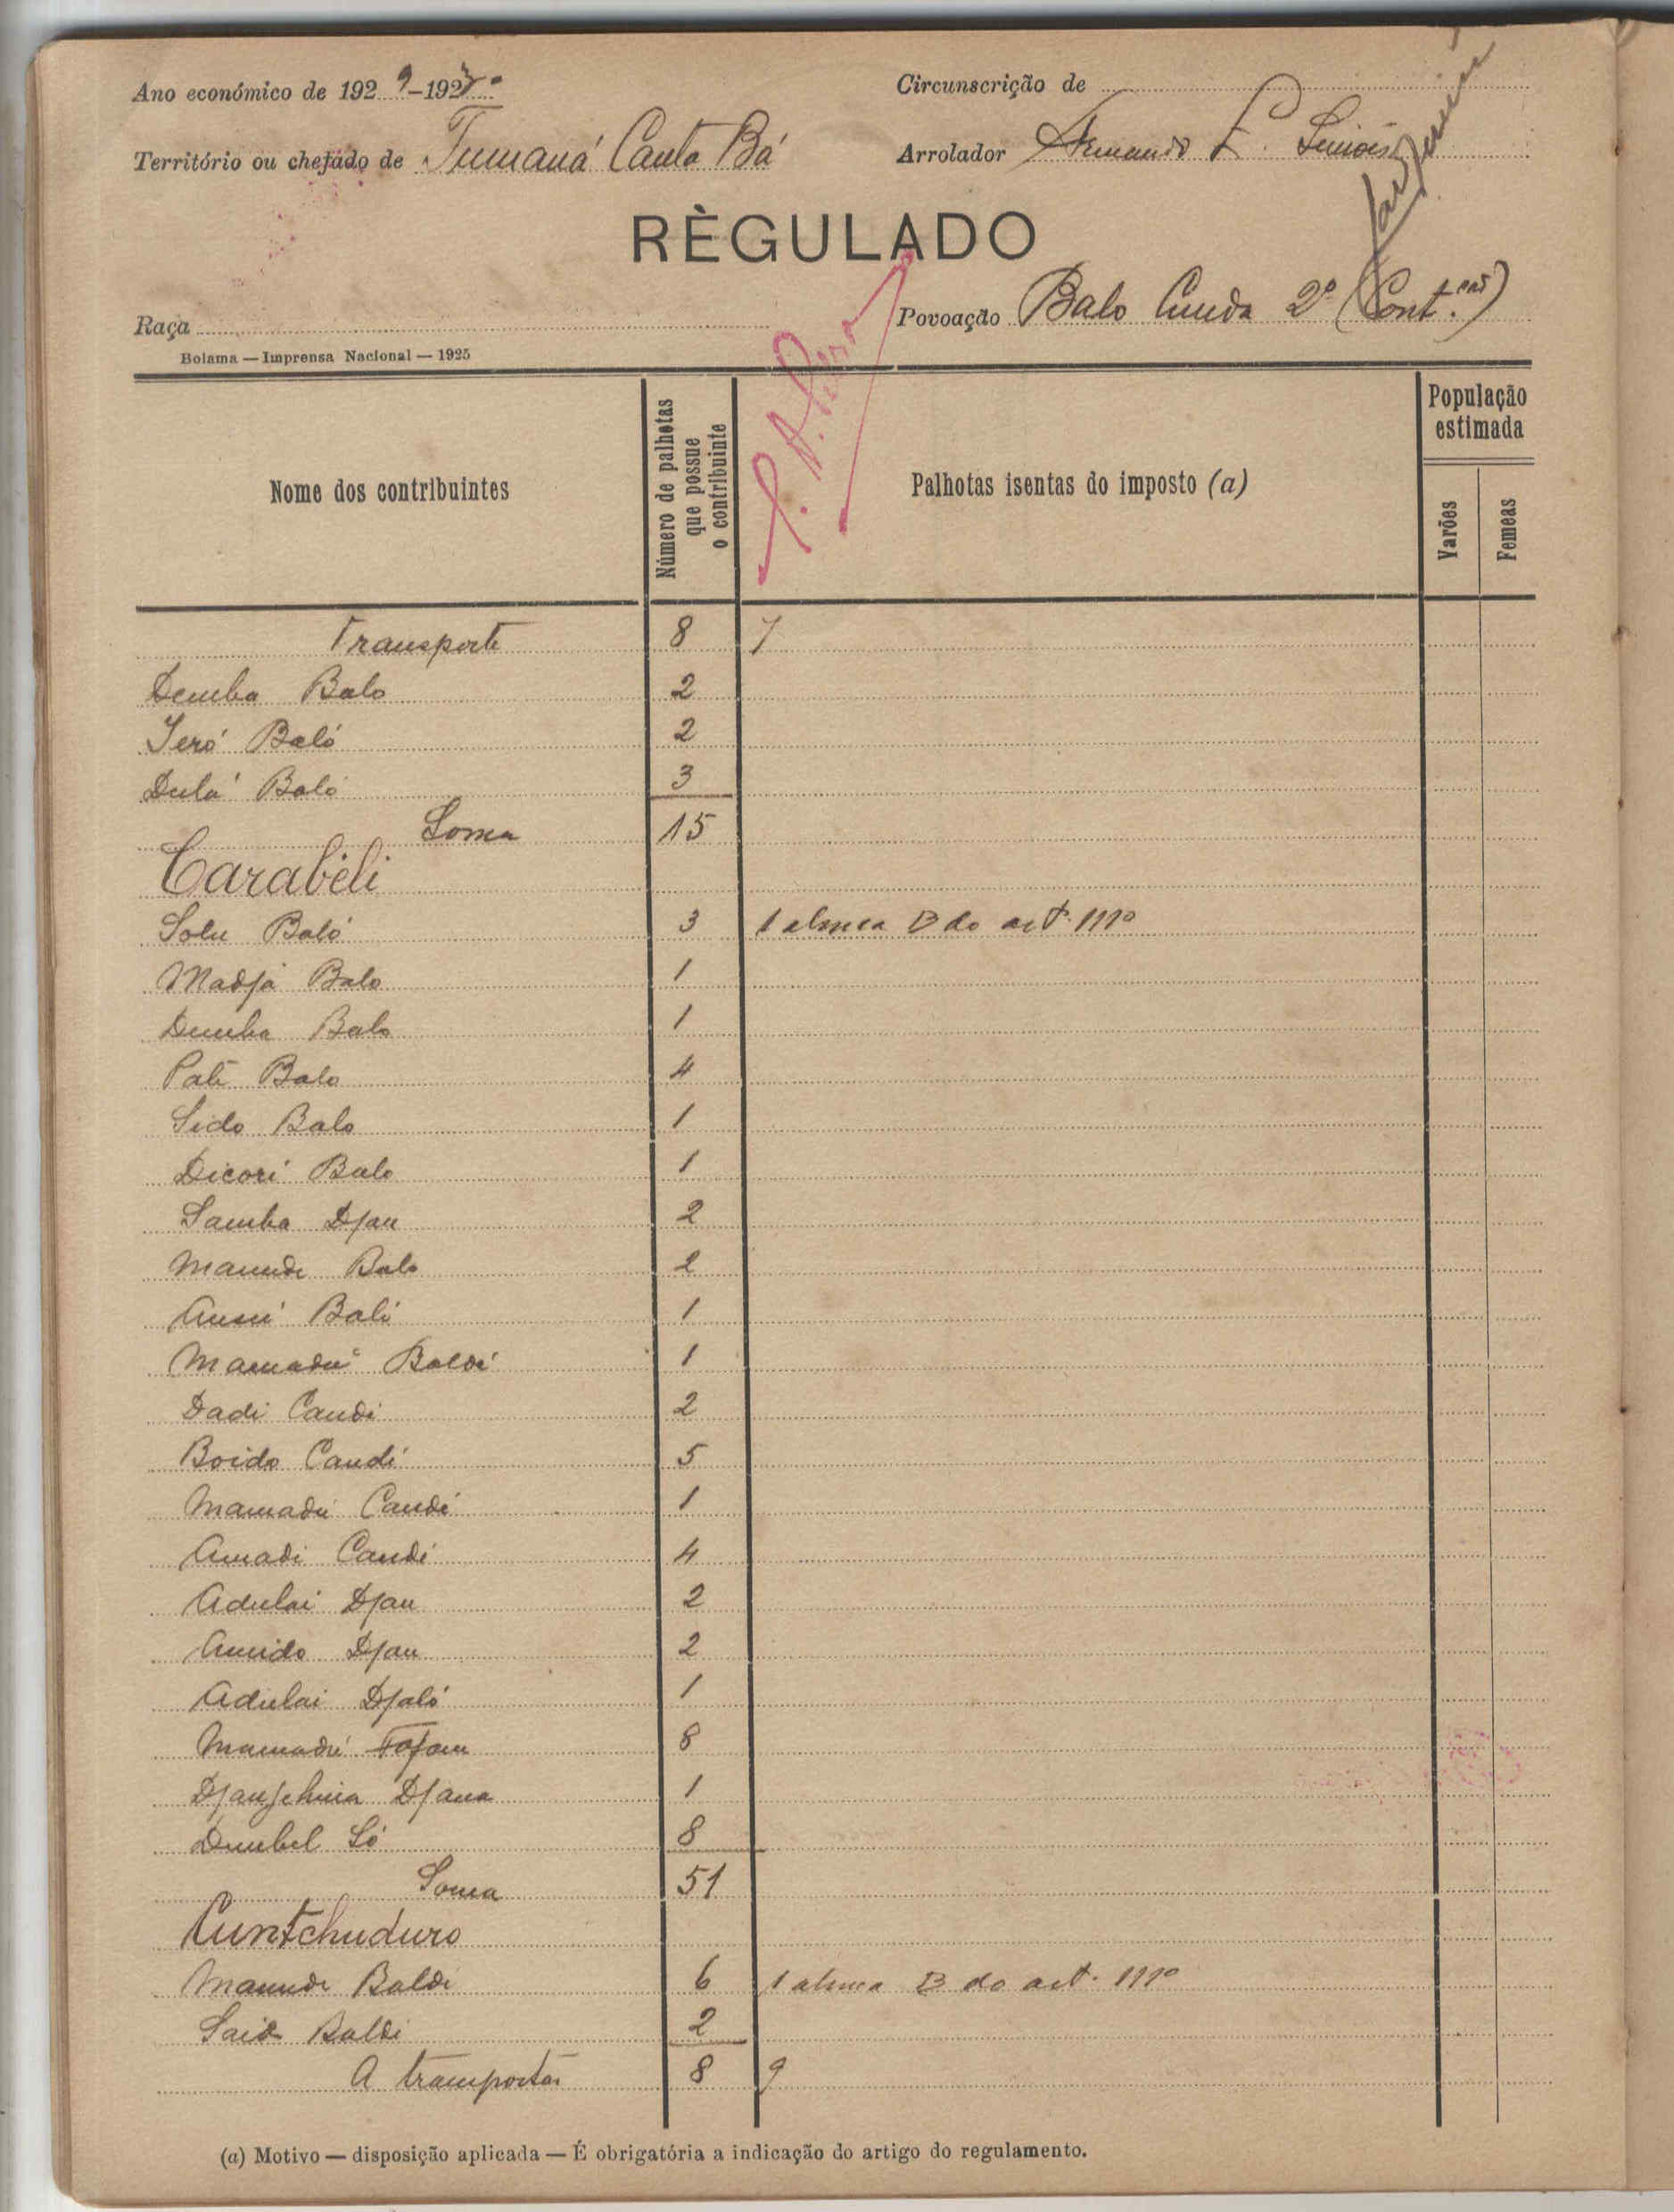 Ano económico de 1929-1930
Circunscrição de
Território ou chefado de Tumaná Canta Bá
Arrolador Armando L. Simões
RÈGULADO
Raça
Povoação Balo Cunda 2º (Cont.ção)
Bolama — Imprensa Nacional — 1925
Nome dos contribuintes
Número de palhotas que possue o contribuinte
Palhotas isentas do imposto (a)
População estimada
Varões
Femeas
Transporte 8 7
Demba Balo 2
Jeró Baló 2
Dulá Baló 3
Soma 15
Carabéli
Solu Baló 3 1 alinea B do art. 111º
Madjá Balo 1
Demba Balo 1
Paté Balo 4
Sido Balo 1
Dicori Balo 1
Samba Djau 2
Maunde Balo 2
Balé 1
Mamadú Baldé 1
Dadi Candé 2
Boido Candé 5
Mamadú Candé 1
Amadi Candé 4
Adulai Djau 2
Amido Djau 2
Adulai Djaló 1
Mamadú 8
Djana 1
Dembel Só 8
Soma 51
Cuntchuduro
Maunde Baldé 6 1 alinea B do art. 111º
Baldé 2
A transportar 8 9
(a) Motivo — disposição aplicada — É obrigatória a indicação do artigo do regulamento.